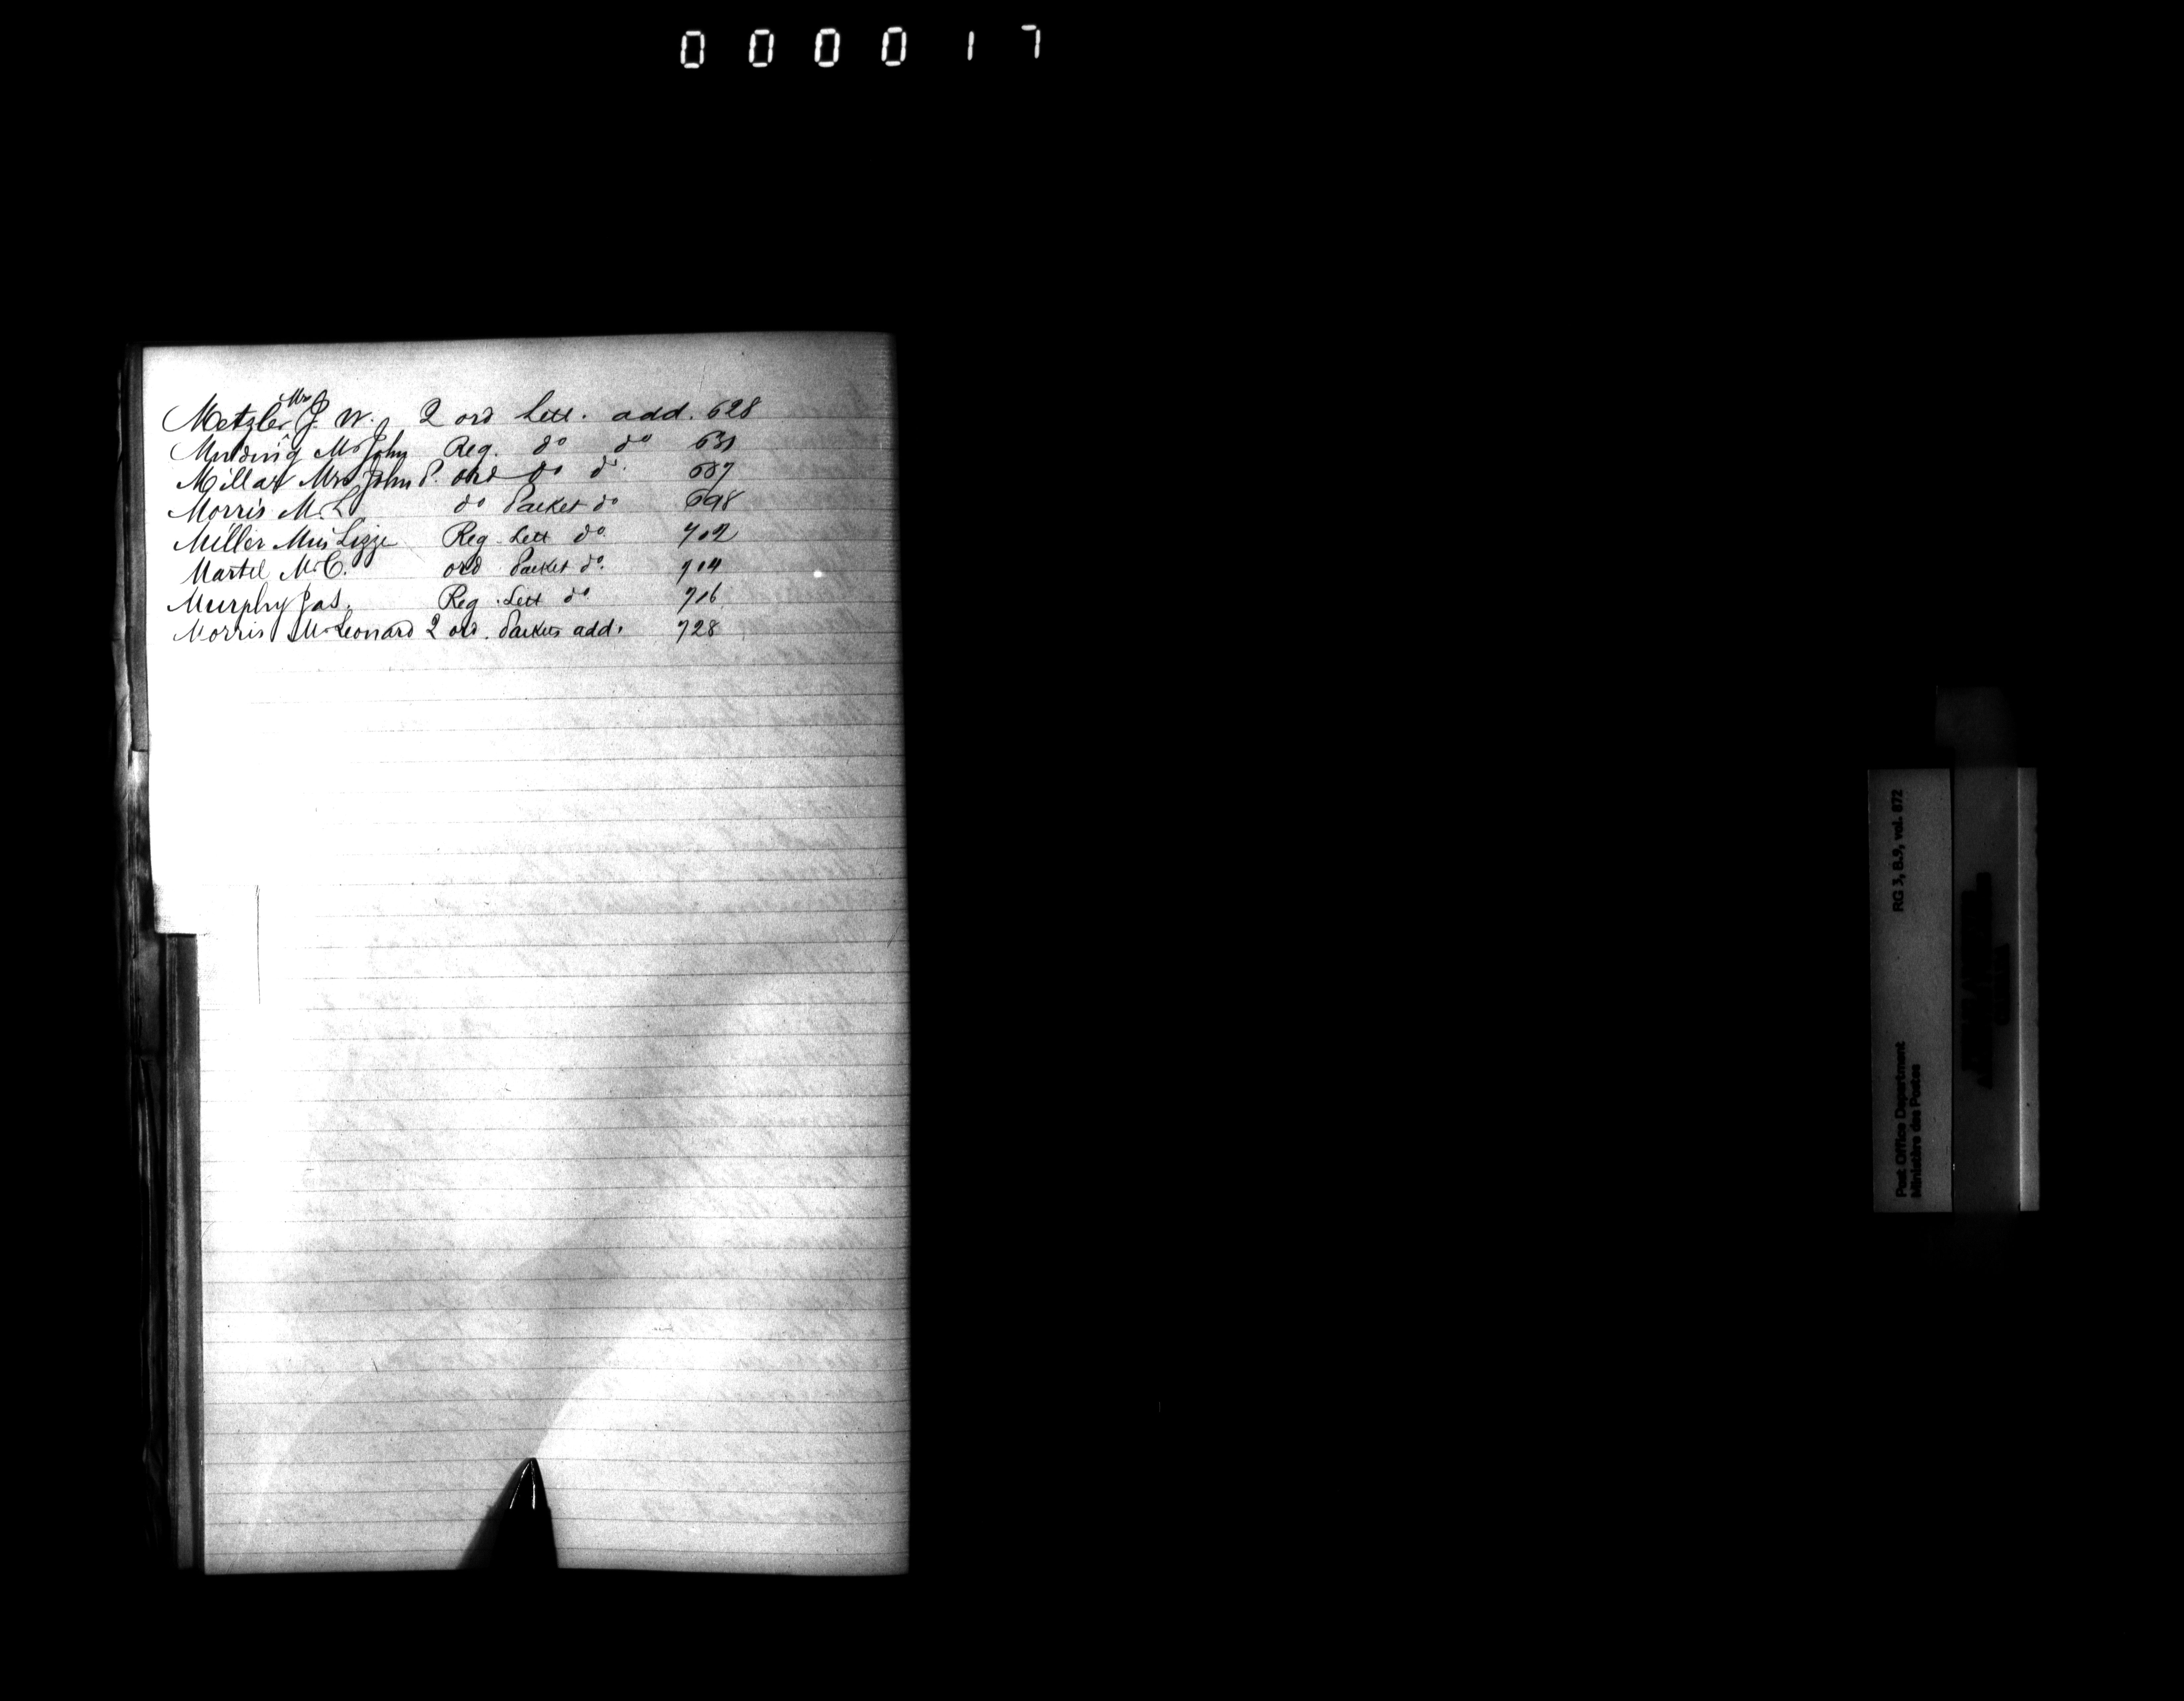 000017
Metzler Mrs J. W. 2 ord Lett. add. 628
Mr John Reg. do do 631
Millar Mrs John P. ord do do 687
Morris M. L. do Packet do 698
Miller Miss Lizzie Reg. Lett do 702
Martel M. C. ord Packet do. 714
Murphy Jas. Reg. Lett do 716
Morris Mr Leonard 2 ord. Packets add. 728
RG 3, B.9, vol. 672
Post Office Department
Ministère des Postes